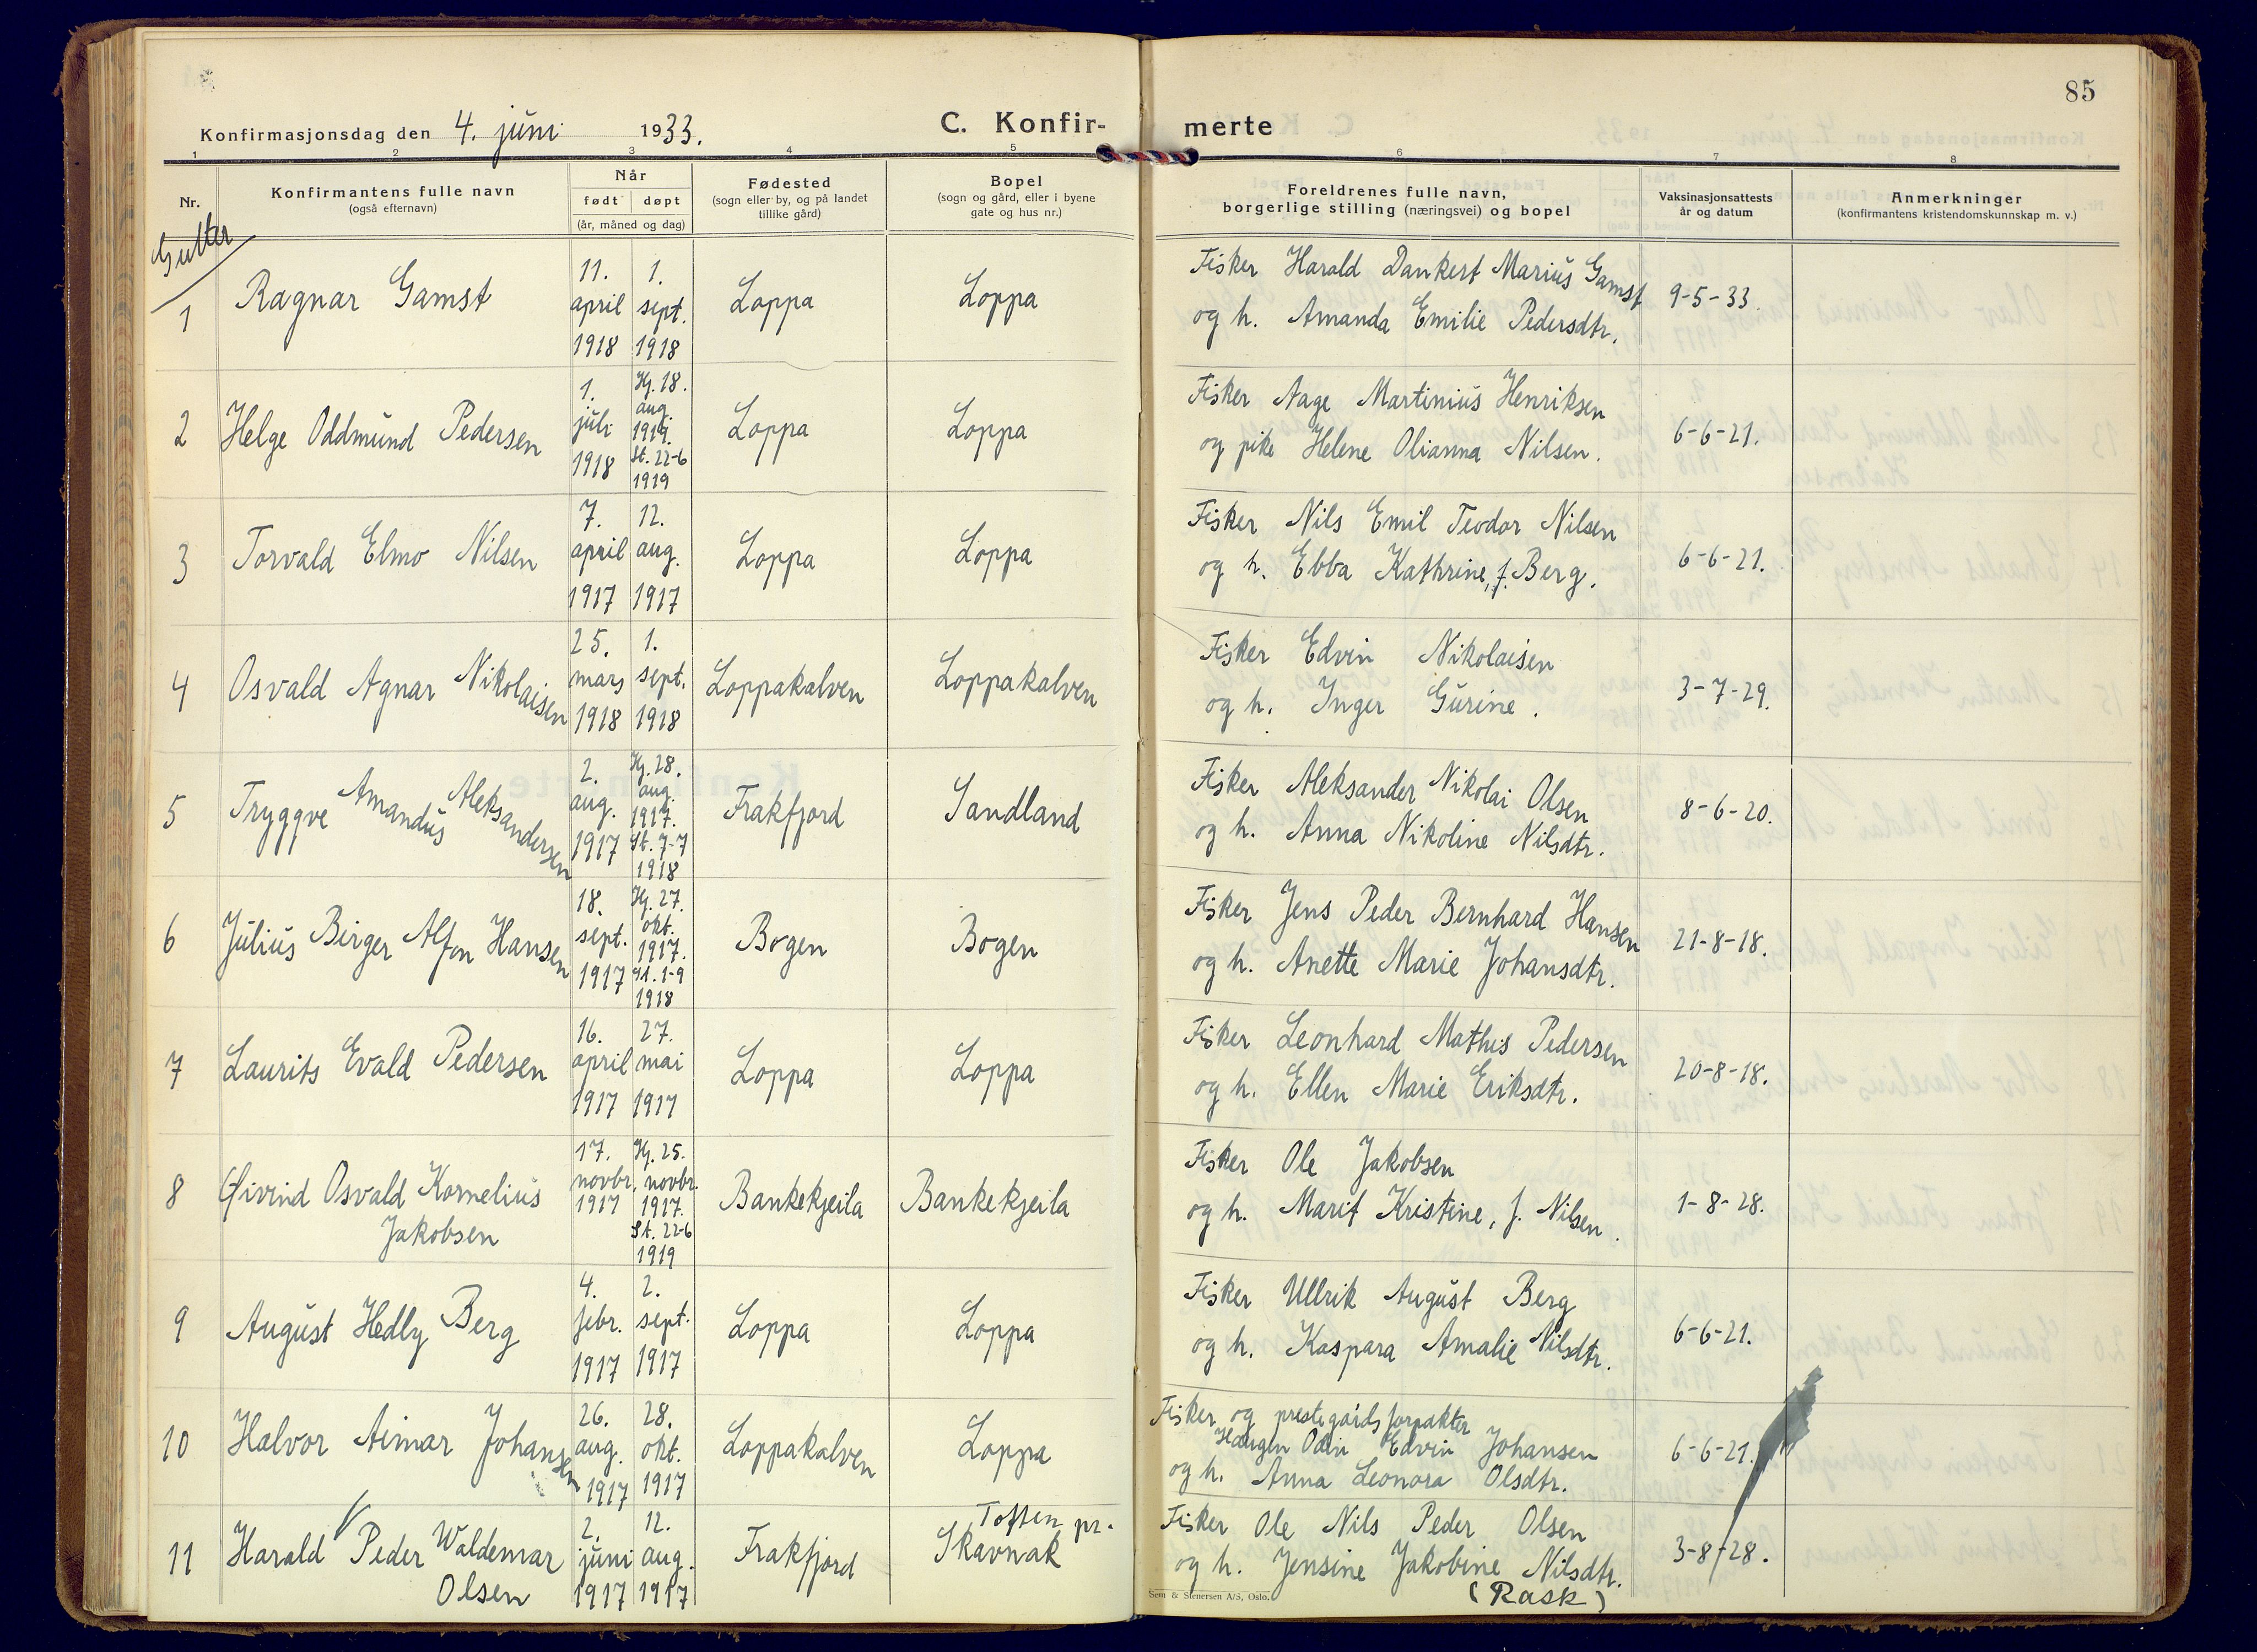 85
Konfirmasjonsdag den 4. juni 1933.
C. Konfir-merte
1 2 3 4 5 6 7 8
Nr.
Konfirmantens fulle navn
(også efternavn)
Når
født døpt
(år, måned og dag)
Fødested
(sogn eller by, og på landet
tillike gård)
Bopel
(sogn og gård, eller i byene
gate og hus nr.)
Foreldrenes fulle navn,
borgerlige stilling (næringsvei) og bopel
Vaksinasjonsattests
år og datum
Anmerkninger
(konfirmantens kristendomskunnskap m. v.)
Gutter
1 Ragnar Gamst 11. april 1918 1. sept. 1918 Loppa Loppa
Fisker Harald Dankert Marius Gamst
og h. Amanda Emilie Pedersdtr.
9-5-33.
2 Helge Oddmund Pedersen 1. juli 1918 Hj. 18. aug. 1919. St. 22-6 1919 Loppa Loppa
Fisker Aage Martinius Henriksen
og pike Helene Olianna Nilsen.
6-6-21.
3 Torvald Elmo Nilsen 7. april 1917 12. aug. 1917 Loppa Loppa
Fisker Nils Emil Teodor Nilsen
og h. Ebba Kathrine, f. Berg.
6-6-21.
4 Osvald Agnar Nikolaisen 25. mars 1918 1. sept. 1918 Loppakalven Loppakalven
Fisker Edvin Nikolaisen
og h. Inger Gurine.
3-7-29.
5 Tryggve Amandus Aleksandersen 2. aug. 1917 Hj. 28. aug. 1917. St. 7-7 1918 Frakfjord Sandland
Fisker Aleksander Nikolai Olsen
og h. Anna Nikoline Nilsdtr.
8-6-20.
6 Julius Birger Alfon Hansen 18. sept. 1917 Hj. 27. okt. 1917. St. 1-9 1918 Bogen Bogen
Fisker Jens Peder Bernhard Hansen
og h. Anette Marie Johansdtr.
21-8-18.
7 Laurits Evald Pedersen 16. april 1917 27. mai 1917 Loppa Loppa
Fisker Leonhard Mathis Pedersen
og h. Ellen Marie Eriksdtr.
20-8-18.
8 Øivind Osvald Kornelius Jakobsen 17. novbr. 1917 Hj. 25. novbr. 1917. St. 22-6 1919 Bankekjeila Bankekjeila
Fisker Ole Jakobsen
og h. Marit Kristine, f. Nilsen.
1-8-28.
9 August Hedly Berg 4. febr. 1917 2. sept. 1917 Loppa Loppa
Fisker Ullrik August Berg
og h. Kaspara Amalie Nilsdtr.
6-6-21.
10 Halvor Aimar Johansen 26. aug. 1917 28. okt. 1917 Loppakalven Loppa
Fisker og prestegårdsforpakter
Haugen Odin Edvin Johansen
og h. Anna Leonora Olsdtr.
6-6-21.
11 Harald Peder Waldemar Olsen 2. juni 1917 12. aug. 1917 Frakfjord Toften pr. Skavnak
Fisker Ole Nils Peder Olsen
og h. Jensine Jakobine Nilsdtr.
(Rask)
3-8-28.
Sem & Stenersen A/S, Oslo.